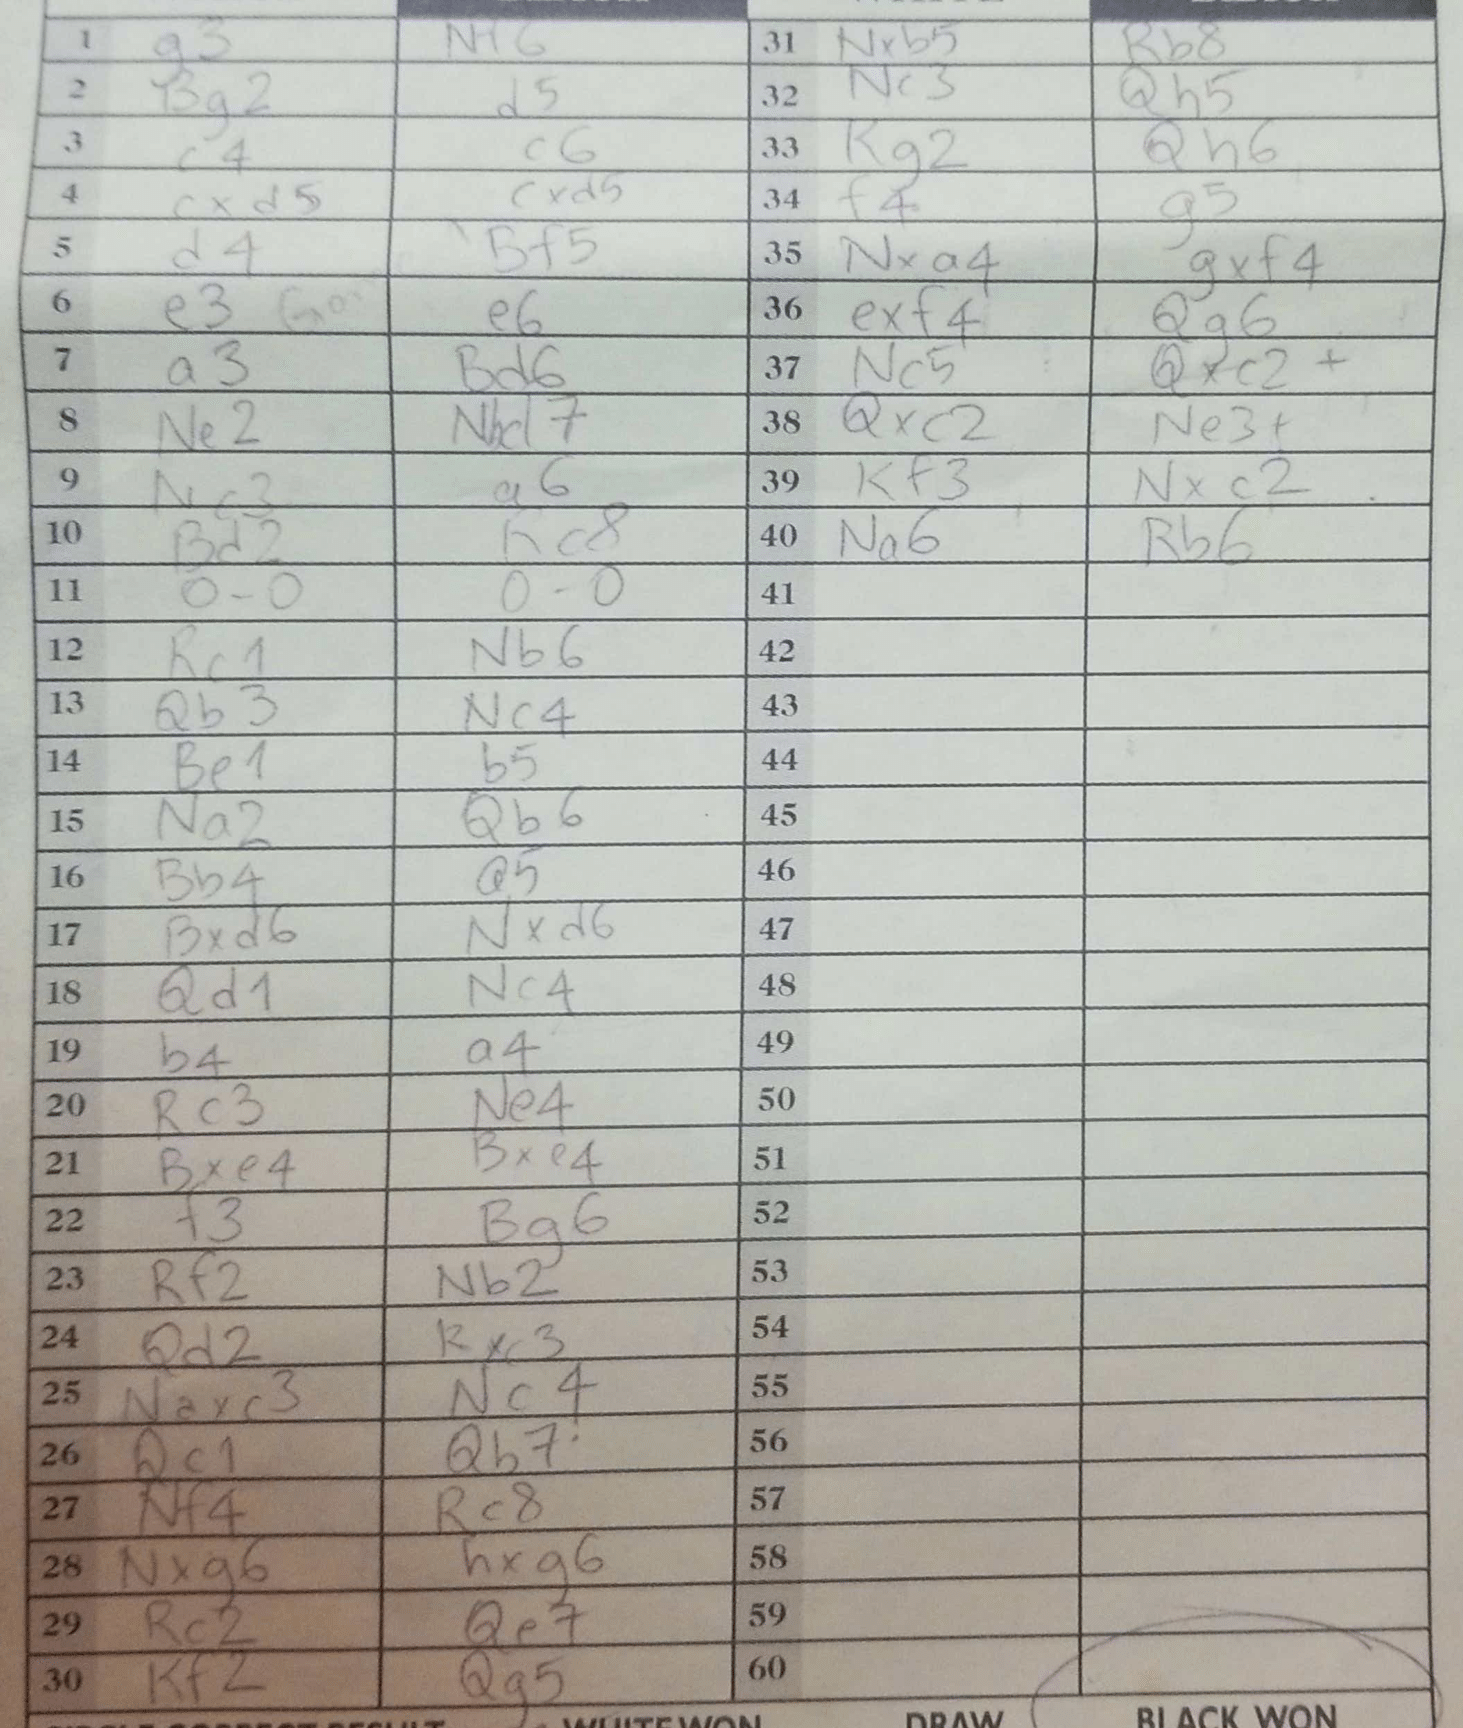 1 g3 Nf6 31 Nxb5 Rb8
2 Bg2 d5 32 Nc3 Qh5
3 c4 c6 33 Kg2 Qh6
4 cxd5 cxd5 34 f4 g5
5 d4 Bf5 35 Nxa4 gxf4
6 e3 e6 36 exf4 Qg6
7 a3 Bd6 37 Nc5 Qxc2+
8 Ne2 Nbd7 38 Qxc2 Ne3+
9 Nc3 a6 39 Kf3 Nxc2
10 Bd2 Rc8 40 Na6 Rb6
11 0-0 0-0 41
12 Rc1 Nb6 42
13 Qb3 Nc4 43
14 Be1 b5 44
15 Na2 Qb6 45
16 Bb4 a5 46
17 Bxd6 Nxd6 47
18 Qd1 Nc4 48
19 b4 a4 49
20 Rc3 Ne4 50
21 Bxe4 Bxe4 51
22 f3 Bg6 52
23 Rf2 Nb2 53
24 Qd2 Rxc3 54
25 Naxc3 Nc4 55
26 Qc1 Qb7 56
27 Nf4 Rc8 57
28 Nxg6 hxg6 58
29 Rc2 Qe7 59
30 Kf2 Qg5 60
CIRCLE CORRECT RESULT WHITE WON DRAW BLACK WON